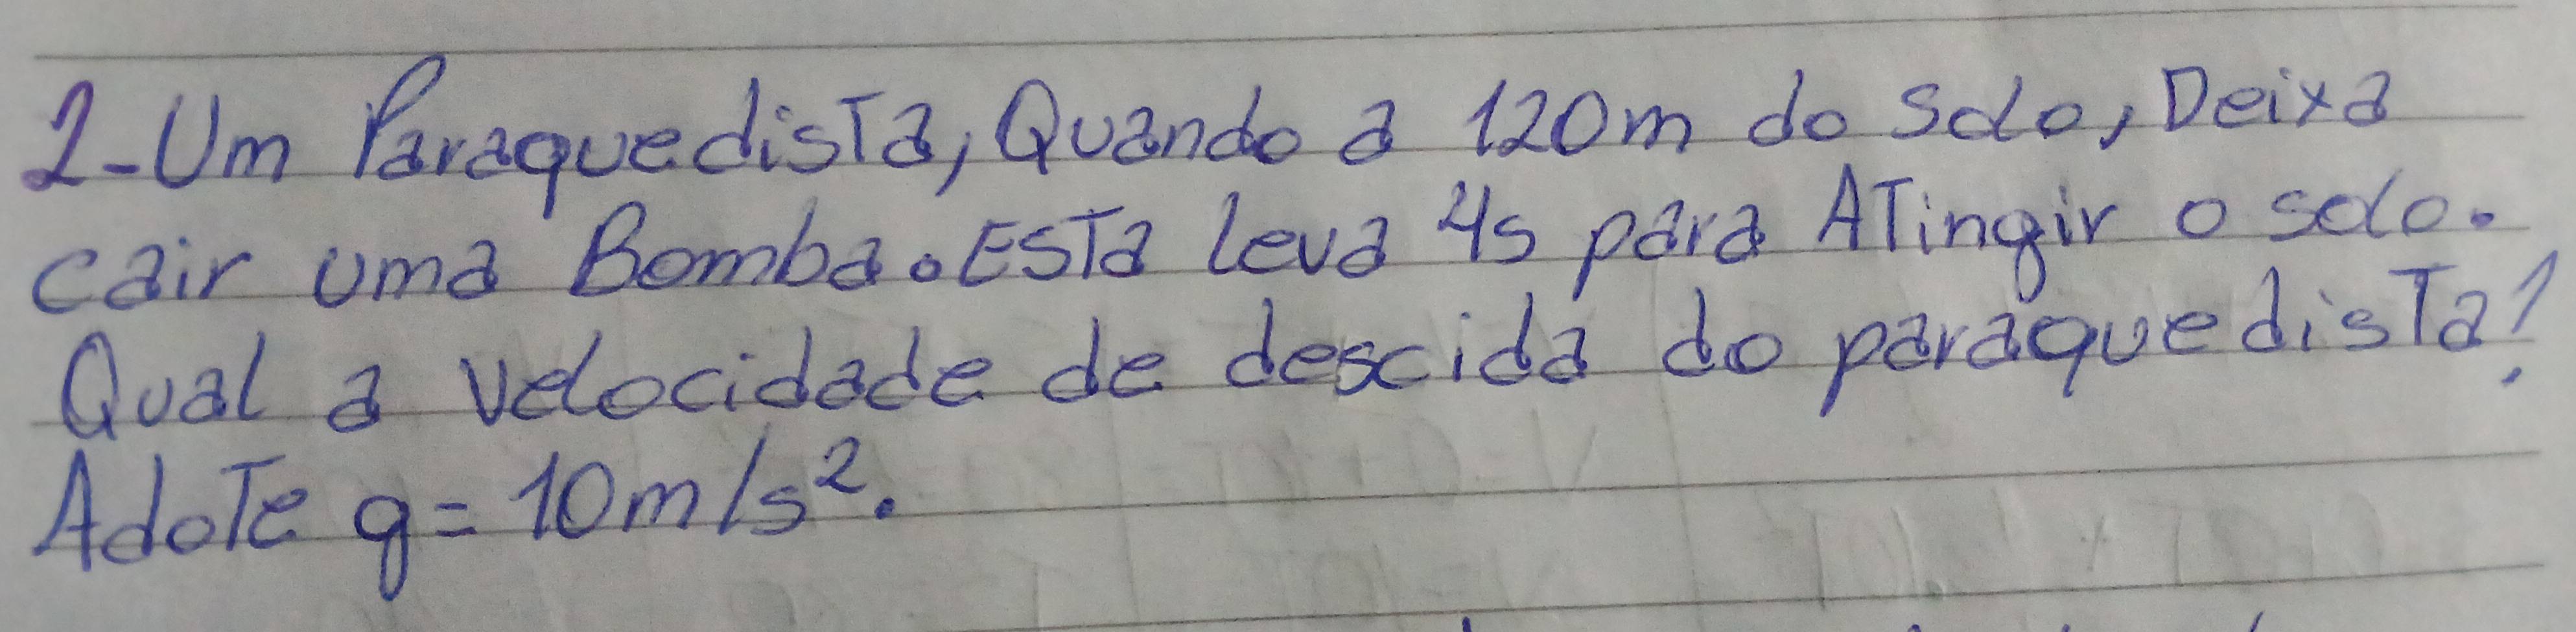 2-Um Paraquedista, Quando a 120m do solo, Deixa
cair uma Bomba. Esta leva 4s para Atingir o solo.
Qual a velocidade de descida do paraquedista?
Adote g = 10m/s².